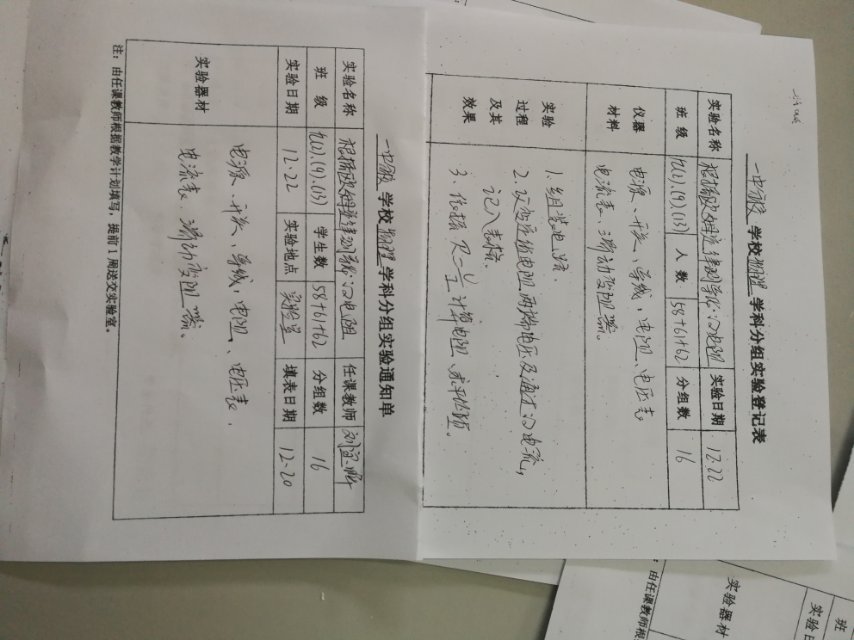 一中分校 学校 物理 学科分组实验登记表
实验名称 根据欧姆定律测导体的电阻 实验日期 12.22
班级 八(2).(9).(13) 人数 58+61+62 分组数 16
仪器材料 电源、开关、导线、电阻、电压表
电流表、滑动变阻器。
实验过程及其效果
1. 组装电流.
2. 改变定值电阻两端电压及通过的电流,
记入表格.
3. 依据 R=U/I 计算电阻、求平均值.
一中分校 学校 物理 学科分组实验通知单
实验名称 根据欧姆定律测导体的电阻 任课教师
班级 八(2).(9).(13) 学生数 58+61+62 分组数 16
实验日期 12.22 实验地点 实验室 填表日期 12-20
实验器材 电源、开关、导线、电阻、电压表、
电流表、滑动变阻器。
注：由任课教师根据教学计划填写，提前1周送交实验室。
班
实验日
实验器材
：由任课教师根